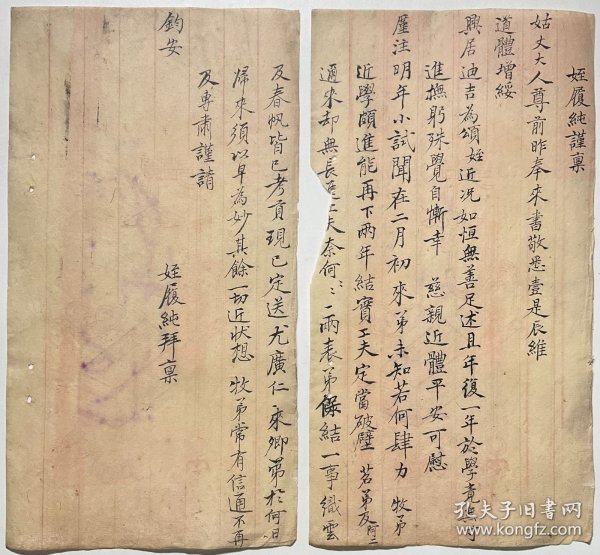 姪履純謹稟
姑丈大人尊前昨奉來書敬悉壹是辰維
道體增綏
興居迪吉為頌姪近況如恒無善足述且年復一年於學竟無可
進撫躬殊覺自慚幸 慈親近體平安可慰
厪注明年小試聞在二月初來弟未知若何肆力 牧弟
近學頗進能再下兩年結實工夫定當破壁 茗弟及阿二
邇來却無長進工夫奈何〻一兩表弟保結一事織雲
及春帆皆已考貢現已定送尤廣仁來卿弟於何日
歸來須以早為妙其餘一切近狀想 牧弟常有信通不再
及專肅謹請
鈞安
姪履純拜稟
孔夫子旧书网
book.kongfz.com